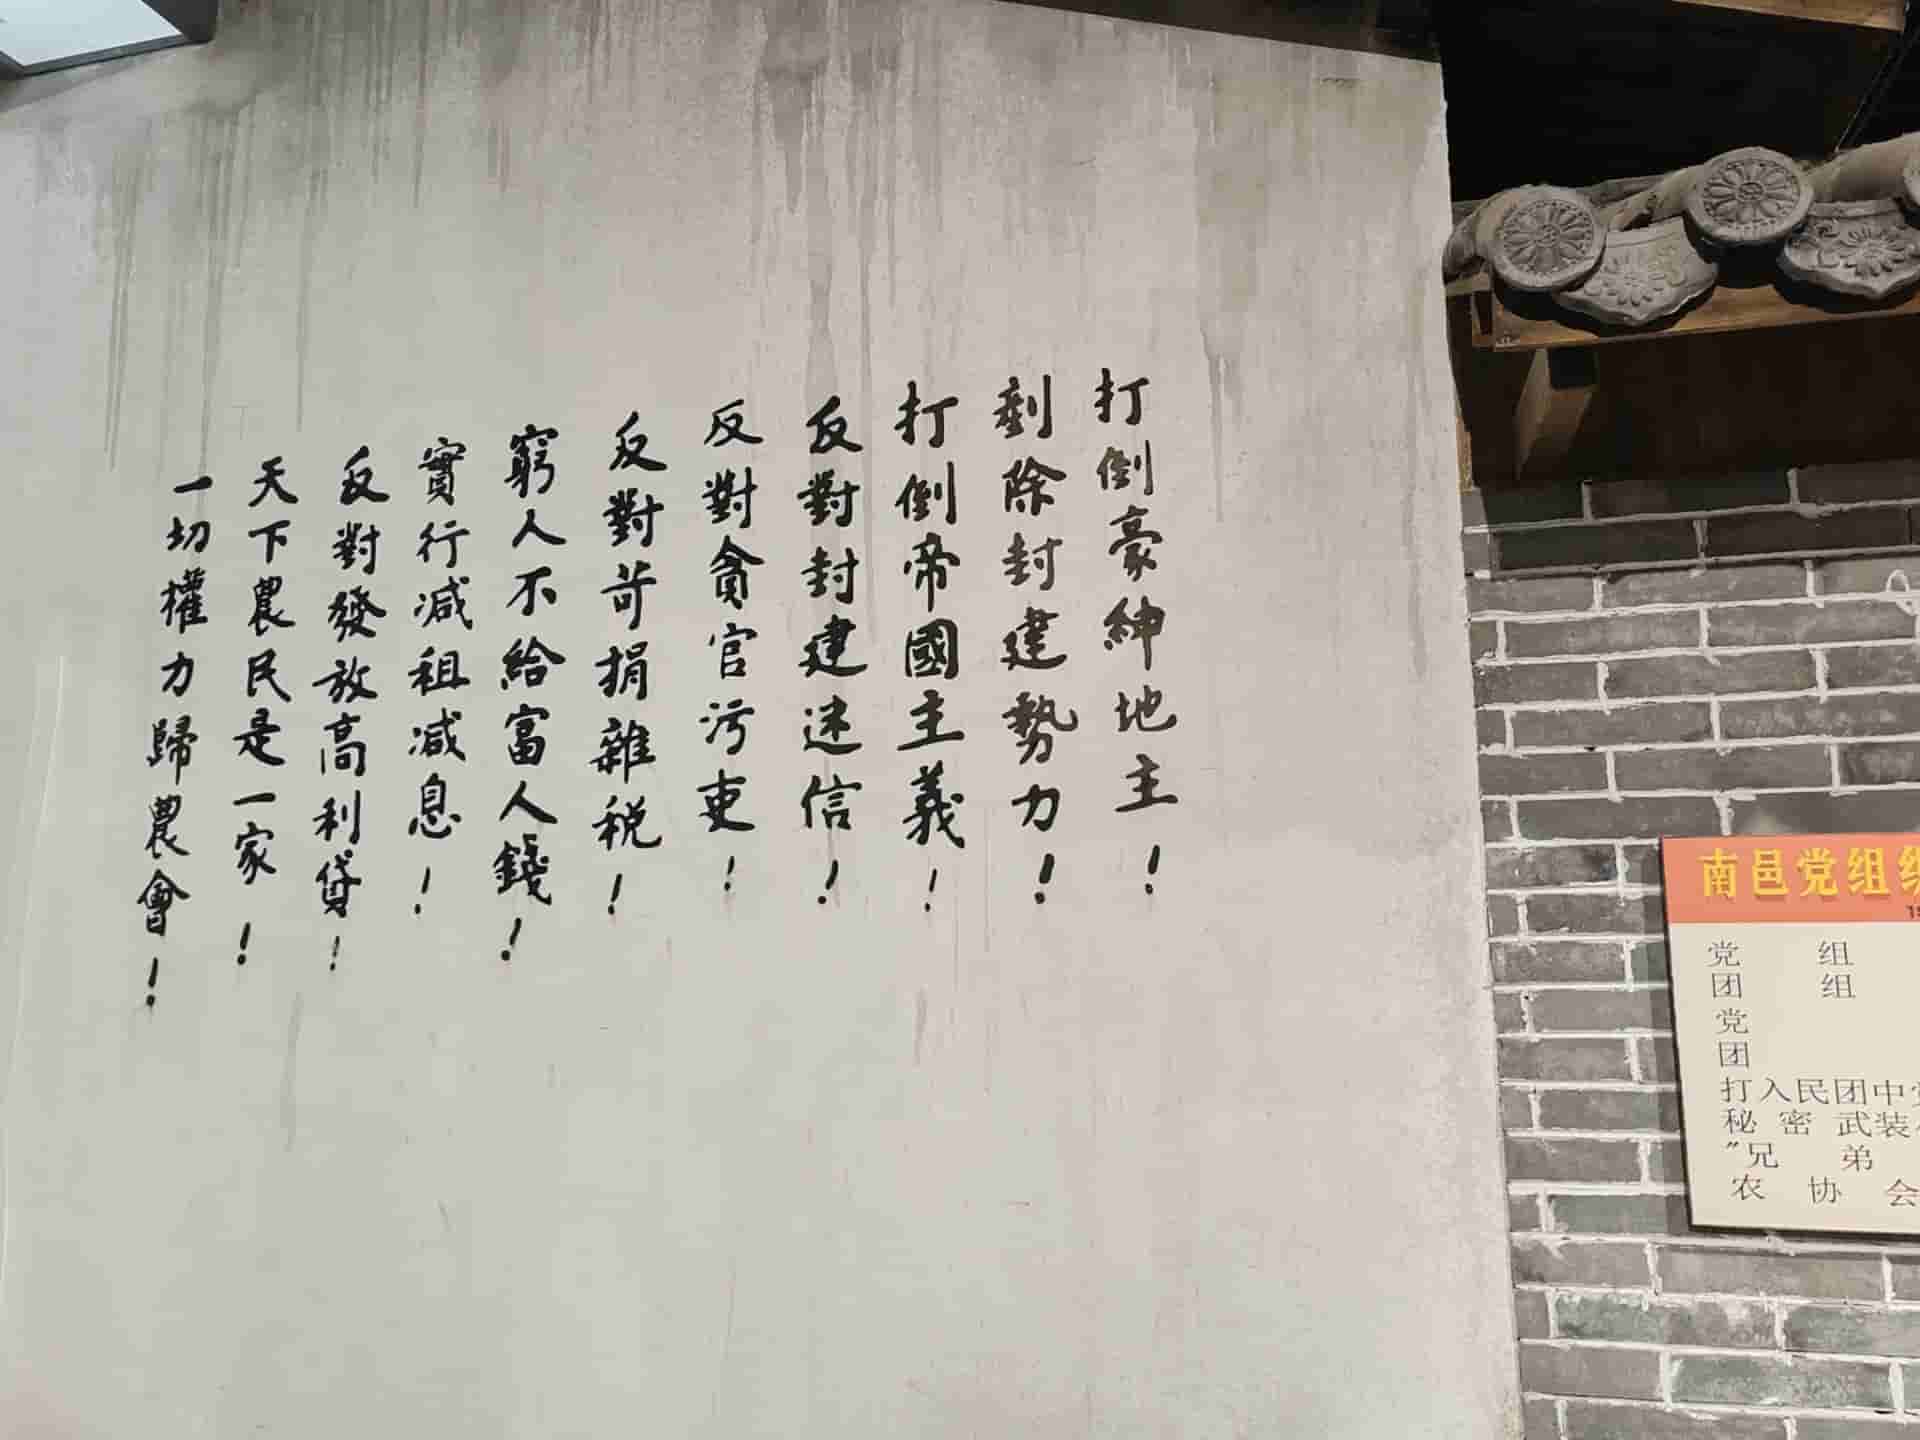 打倒豪紳地主！
剷除封建勢力！
打倒帝國主義！
反對封建迷信！
反對貪官污吏！
反對苛捐雜税！
窮人不給富人錢！
實行减租减息！
反對發放高利貸！
天下農民是一家！
一切權力歸農會！
南邑党组织
党 组
团 组
党
团
打入民团中党
秘密武装
“兄弟
农协会